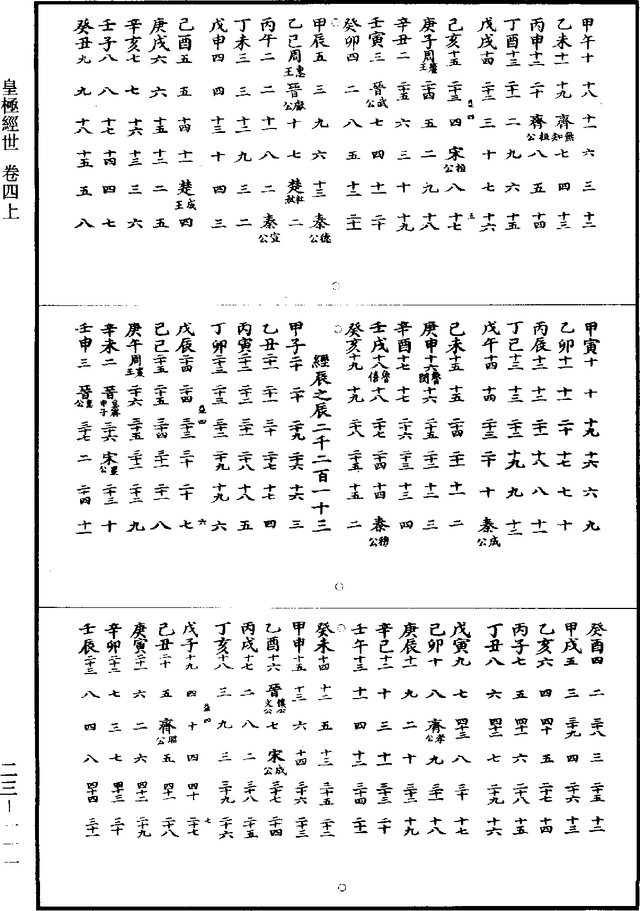 皇極經世 卷四上
甲午 十 十八 十一 六 三 十二
乙未 十一 十九 齊無知 七 四 十三
丙申 十二 二十 齊桓公 八 五 十四
丁酉 十三 二十一 二 九 六 十五
戊戌 十四 二十二 三 十 七 十六
己亥 十五 二十三 四 宋桓公 八 十七
庚子 周釐王 二十四 五 二 九 十八
辛丑 二 二十五 六 三 十 十九
壬寅 三 晉武公 七 四 十一 二十
癸卯 四 二 八 五 十二 二十一
甲辰 五 三 九 六 十三 秦德公
乙巳 周惠王 晉獻公 十 七 楚杜敖 二
丙午 二 二 十一 八 二 秦宣公
丁未 三 三 十二 九 三 二
戊申 四 四 十三 十 四 三
己酉 五 五 十四 十一 楚成王 四
庚戌 六 六 十五 十二 二 五
辛亥 七 七 十六 十三 三 六
壬子 八 八 十七 十四 四 七
癸丑 九 九 十八 十五 五 八
甲寅 十 十 十九 十六 六 九
乙卯 十一 十一 二十 十七 七 十
丙辰 十二 十二 二十一 十八 八 十一
丁巳 十三 十三 二十二 十九 九 十二
戊午 十四 十四 二十三 二十 十 秦成公
己未 十五 十五 二十四 二十一 十一 二
庚申 十六 魯閔 十六 二十五 二十二 十二 三
辛酉 十七 十七 二十六 二十三 十三 四
壬戌 十八 魯僖 十八 二十七 二十四 十四 秦穆公
癸亥 十九 十九 二十八 二十五 十五 二
經辰之辰二千二百一十三
甲子 二十 二十 二十九 二十六 十六 三
乙丑 二十一 二十一 三十 二十七 十七 四
丙寅 二十二 二十二 三十一 二十八 十八 五
丁卯 二十三 二十三 三十二 二十九 十九 六
戊辰 二十四 二十四 三十三 三十 二十 七
己巳 二十五 二十五 三十四 三十一 二十一 八
庚午 周襄王 二十六 三十五 三十二 二十二 九
辛未 二 晉奚齊 三十六 宋襄公 二十三 十
壬申 三 晉惠公 三十七 二 二十四 十一
癸酉 四 二 三十八 三 二十五 十二
甲戌 五 三 三十九 四 二十六 十三
乙亥 六 四 四十 五 二十七 十四
丙子 七 五 四十一 六 二十八 十五
丁丑 八 六 四十二 七 二十九 十六
戊寅 九 七 四十三 八 三十 十七
己卯 十 八 齊孝公 九 三十一 十八
庚辰 十一 九 二 十 三十二 十九
辛巳 十二 十 三 十一 三十三 二十
壬午 十三 十一 四 十二 三十四 二十一
癸未 十四 十二 五 十三 三十五 二十二
甲申 十五 十三 六 十四 三十六 二十三
乙酉 十六 晉懷公文公 七 宋成公 三十七 二十四
丙戌 十七 二 八 二 三十八 二十五
丁亥 十八 三 九 三 三十九 二十六
戊子 十九 四 十 四 四十 二十七
己丑 二十 五 齊昭公 五 四十一 二十八
庚寅 二十一 六 二 六 四十二 二十九
辛卯 二十二 七 三 七 四十三 三十
壬辰 二十三 八 四 八 四十四 三十一
二三—一一一